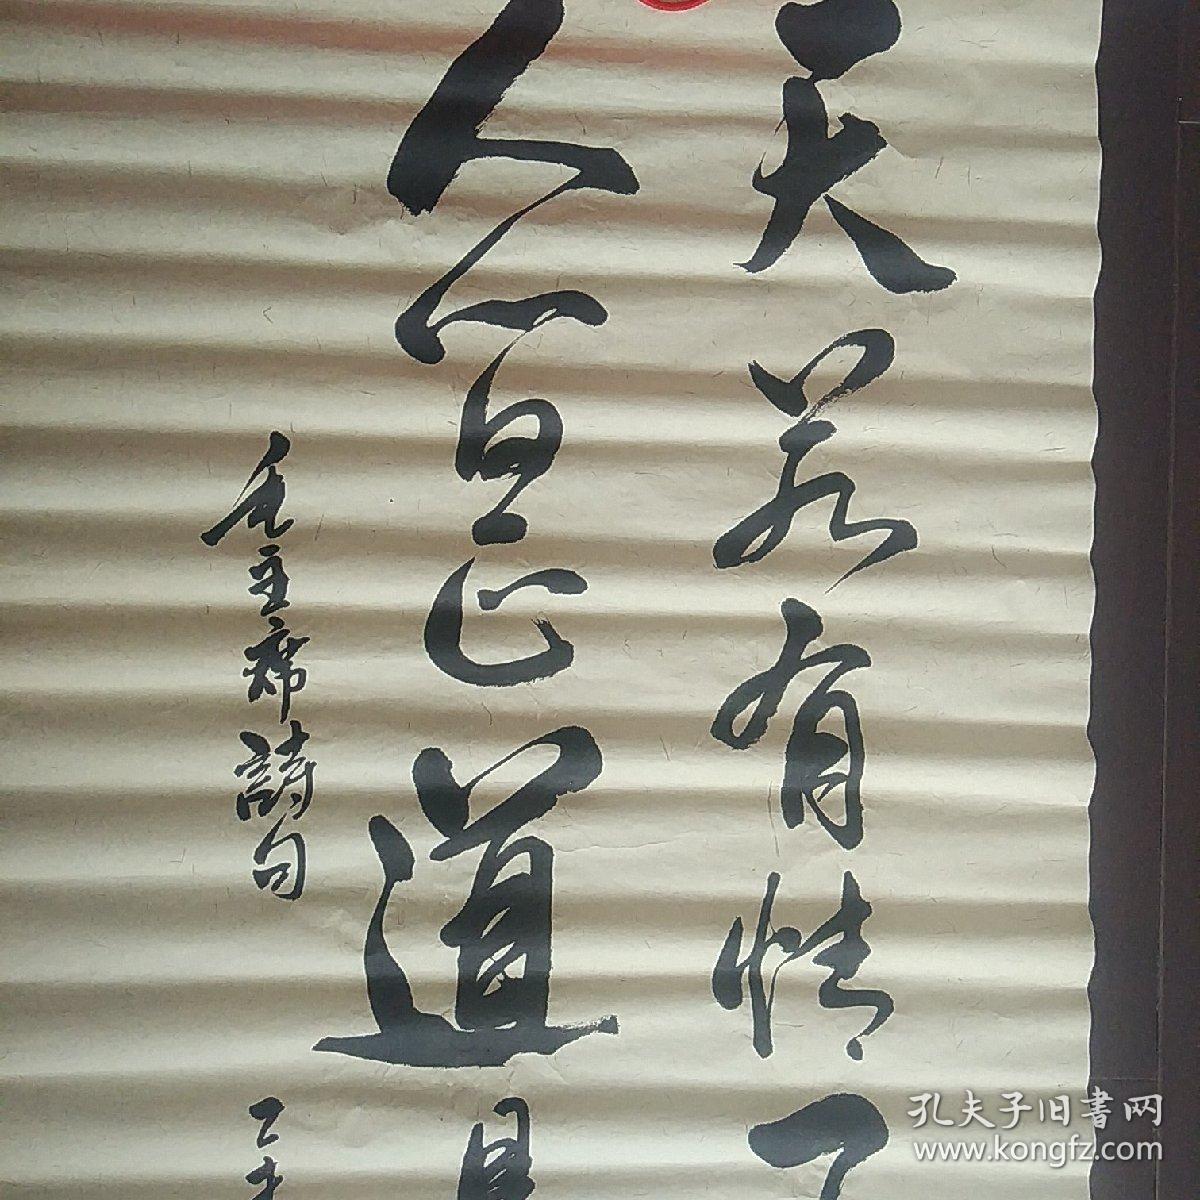 天若有情
人間正道是
毛主席詩句
乙
孔夫子旧書网
www.kongfz.com